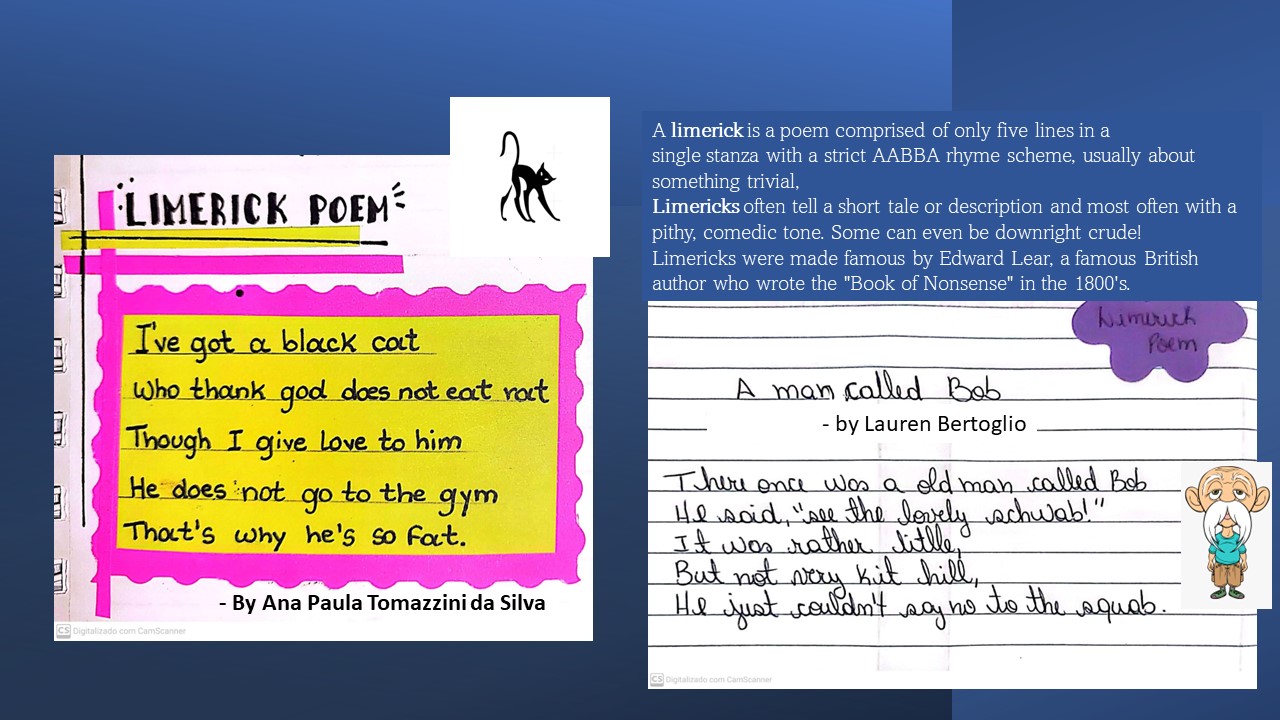 LIMERICK POEM
I've got a black cat
Who thank god does not eat rat
Though I give love to him
He does not go to the gym
That's why he's so fat.
- By Ana Paula Tomazzini da Silva
CS Digitalizado com CamScanner
A limerick is a poem comprised of only five lines in a
single stanza with a strict AABBA rhyme scheme, usually about
something trivial,
Limericks often tell a short tale or description and most often with a
pithy, comedic tone. Some can even be downright crude!
Limericks were made famous by Edward Lear, a famous British
author who wrote the "Book of Nonsense" in the 1800's.
Limerick
Poem
A man called Bob
- by Lauren Bertoglio
There once was a old man called Bob
He said, "see the lovely schwab!"
It was rather litlle,
But not very kit hill,
He just couldn't say no to the squab.
CS Digitalizado com CamScanner